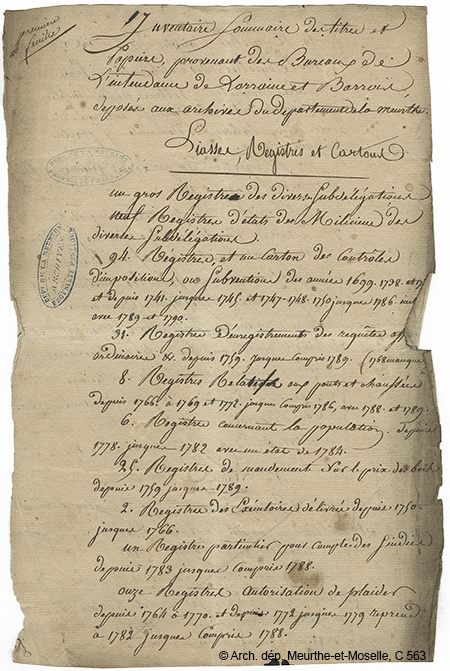 première
feuille
17 Inventaire Sommaire des titres et
Papiers, provenant des Bureaux de
L'intendance de Lorraine et Barrois
déposés aux archives du departement de la meurthe.
Liasses, Registres et Cartons
un gros Registre des diverses Subdélégations
neuf Registres d'états des Miliciens des
diverses Subdélégations.
94. Registres, et un Carton des Controles
d'impositions, ou Subventions des années 1699. 1738. et
et depuis 1741. jusques 1745. et 1747-1748. 1750 jusques 1786.
avec 1789 et 1790.
31. Registres d'enregistrements des requêtes
ordinaires &. depuis 1759. jusques compris 1789. (1768 manque
8. Registres Relatifs aux ponts et chaussées
depuis 1766. à 1769 et 1772. jusques Compris 1786, avec 1788. et 1789.
6. Registres concernant la population, depuis
1778. jusques 1782 avec un état de 1784.
25. Registres de mandement sur le prix des bois
depuis 1759 jusques 1789.
2. Registres des Exécutoires délivrés depuis 1750.
jusques 1766.
un Registre particulier pour Comptes des Sindics
depuis 1783 jusques Compris 1788.
onze Registres autorisation de plaider
depuis 1764 à 1770. et depuis 1772 jusques 1779 reprend
à 1782 jusques Compris 1788.
© Arch. dép. Meurthe-et-Moselle, C 563